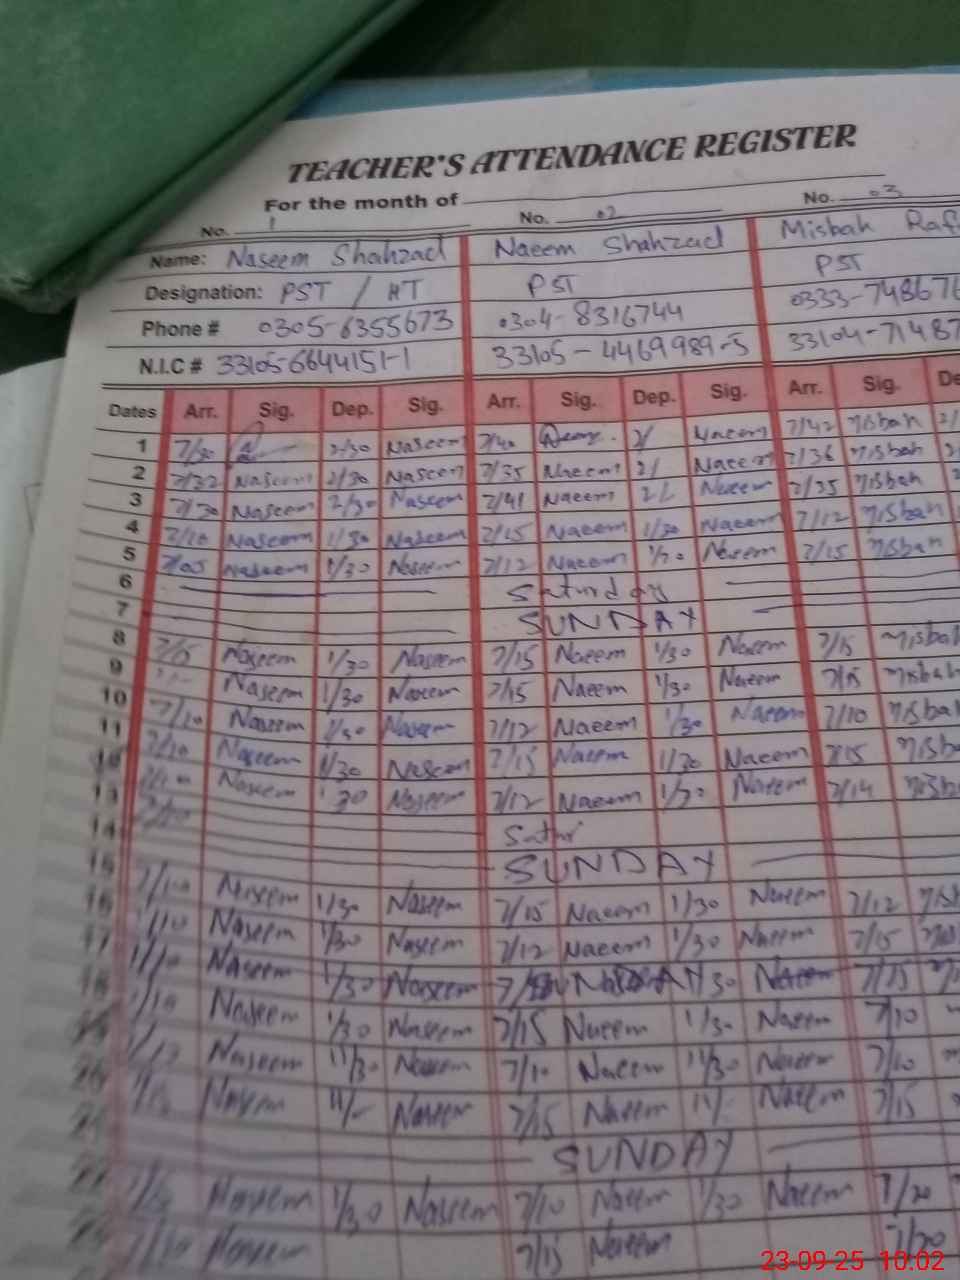 TEACHER'S ATTENDANCE REGISTER
For the month of
No. 1 No. 02 No. 03
Name: Naseem Shahzad Naeem Shahzad Misbah
Designation: PST / HT PST PST
Phone # 0305-6355673 0304-8316744 0333-74867
N.I.C # 33105-6644151-1 33105-4469989-5 33104-7148
Dates Arr. Sig. Dep. Sig. Arr. Sig. Dep. Sig. Arr. Sig.
1 7/30 2/30 Naseem 7/40 2/ Naeem 7/42 Misbah
2 7/32 Naseem 2/30 Naseem 7/35 Naeem 2/ Naeem 7/36 Misbah
3 7/30 Naseem 2/30 Naseem 7/41 Naeem 2/ Naeem 7/35 Misbah
4 7/10 Naseem 1/30 Naseem 7/15 Naeem 1/30 Naeem 7/12 Misbah
5 7/05 Naseem 1/30 Naseem 7/12 Naeem 1/30 Naeem 7/15 Misbah
6 Saturday
7 SUNDAY
8 Naseem 1/30 Naseem 7/15 Naeem 1/30 Naeem 7/15 Misbah
9 Naseem 1/30 Naseem 7/15 Naeem 1/30 Naeem 7/15 Misbah
10 7/10 Naseem 1/30 Naseem 7/12 Naeem 1/30 Naeem 7/10 Misbah
11 7/10 Naseem 1/30 Naseem 7/15 Naeem 1/30 Naeem 7/15
Naseem 30 Naseem 7/12 Naeem 1/30 Naeem 7/14
13
14 SUNDAY
15 Naseem 1/30 Naseem 7/15 Naeem 1/30 Naeem 7/12
16 Naseem 1/30 Naseem 7/12 Naeem 1/30 Naeem 7/15
17 Naseem 1/30 Naseem 1/30 Naeem 7/15
18 Naseem 1/30 Naseem 7/15 Naeem 1/30 Naeem 7/10
Naseem 11/30 Naseem 7/10 Naeem 11/30 Naeem 7/10
Naseem 11/ Naseem 7/15 Naeem 11/ Naeem 7/15
SUNDAY
Naseem 1/30 Naseem 7/10 Naeem 1/30 Naeem 7/20
Naseem 7/15 Naeem 7/20
23-09-25 10:02